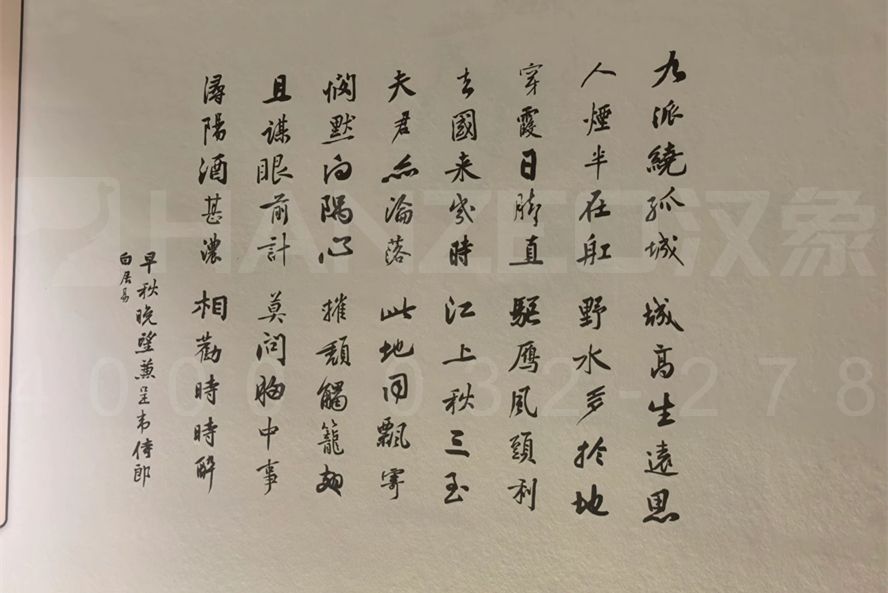 九派繞孤城 城高生遠思
人煙半在舡 野水多於地
穿霞日脚直 驅鴈風頭利
去國来幾時 江上秋三至
夫君亦淪落 此地同飄寄
憫默向隅心 摧頽觸籠翅
且謀眼前計 莫问胸中事
潯陽酒甚濃 相勸時時醉
早秋晚望兼呈韦侍郎
白居易
汉象